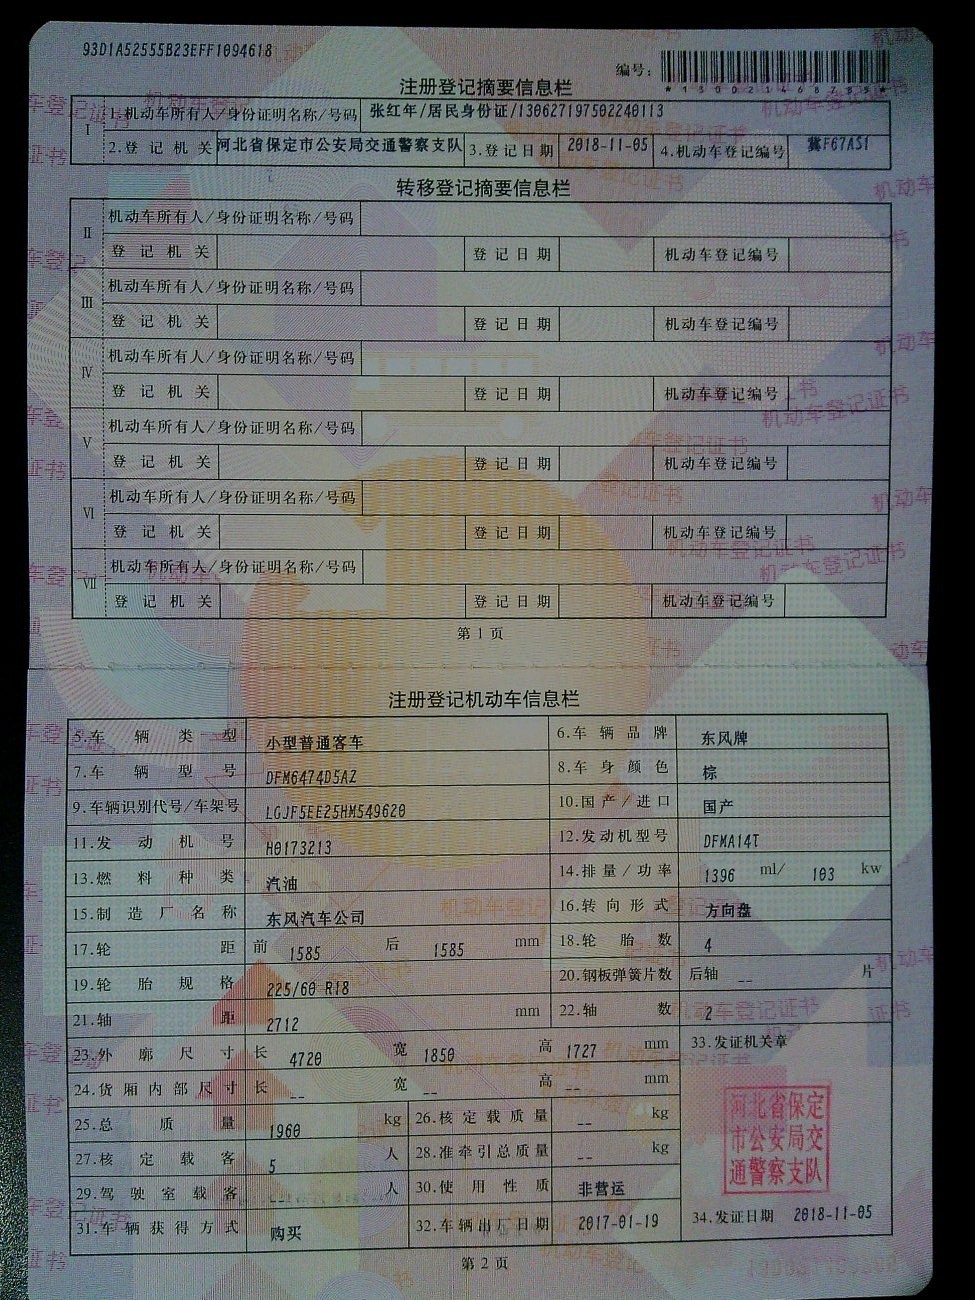 93D1A52555B23EFF1094618
编号:
注册登记摘要信息栏
I 1.机动车所有人/身份证明名称/号码 张红年/居民身份证/130627197502240113
2.登记机关 河北省保定市公安局交通警察支队 3.登记日期 2018-11-05 4.机动车登记编号 冀F67A51
转移登记摘要信息栏
II 机动车所有人/身份证明名称/号码
登记机关 登记日期 机动车登记编号
III 机动车所有人/身份证明名称/号码
登记机关 登记日期 机动车登记编号
IV 机动车所有人/身份证明名称/号码
登记机关 登记日期 机动车登记编号
V 机动车所有人/身份证明名称/号码
登记机关 登记日期 机动车登记编号
VI 机动车所有人/身份证明名称/号码
登记机关 登记日期 机动车登记编号
VII 机动车所有人/身份证明名称/号码
登记机关 登记日期 机动车登记编号
第 1 页
注册登记机动车信息栏
5.车辆类型 小型普通客车 6.车辆品牌 东风牌
7.车辆型号 DFM6474D5AZ 8.车身颜色 棕
9.车辆识别代号/车架号 LGJF5EE25HM549620 10.国产/进口 国产
11.发动机号 H0173213 12.发动机型号 DFMA14T
13.燃料种类 汽油 14.排量/功率 1396 ml/ 103 kw
15.制造厂名称 东风汽车公司 16.转向形式 方向盘
17.轮距 前 1585 后 1585 mm 18.轮胎数 4
19.轮胎规格 225/60 R18 20.钢板弹簧片数 后轴 -- 片
21.轴距 2712 mm 22.轴数 2
23.外廓尺寸 长 4720 宽 1850 高 1727 mm 33.发证机关章
24.货厢内部尺寸 长 -- 宽 -- 高 -- mm
25.总质量 1960 kg 26.核定载质量 -- kg
27.核定载客 5 人 28.准牵引总质量 -- kg
29.驾驶室载客 -- 人 30.使用性质 非营运
31.车辆获得方式 购买 32.车辆出厂日期 2017-01-19 34.发证日期 2018-11-05
河北省保定
市公安局交
通警察支队
第 2 页